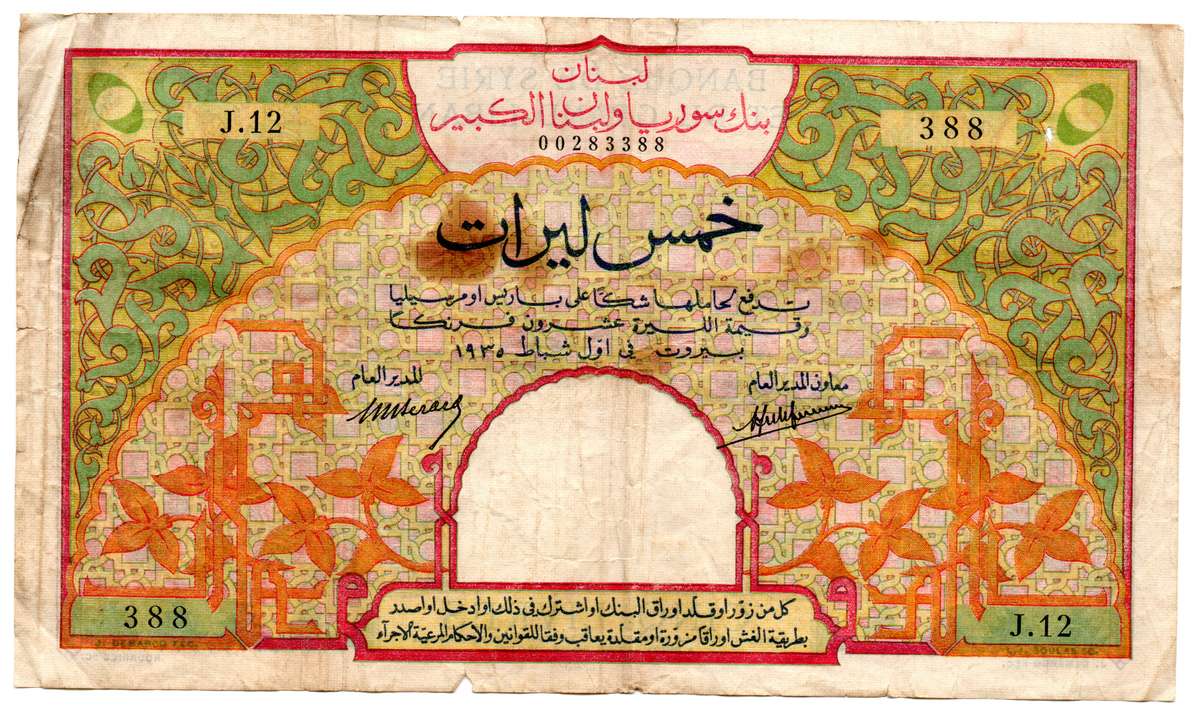 لبنان
بنك سوريا ولبنان الكبير
00283388
J.12
388
خمس ليرات
تدفع لحاملها شكًا على باريس او مرسيليا
وقيمة الليرة عشرون فرنكًا
بيروت في اوّل شباط ١٩٣٥
المدير العام
معاون المدير العام
كل من زوّر او قلّد اوراق البنك او اشترك في ذلك او ادخل او اصدر
بطريقة الغش اوراقًا مزوّرة او مقلّدة يعاقب وفقًا للقوانين والأحكام المرعيّة الاجراء
388
J.12
J. DEMARCO FEC.